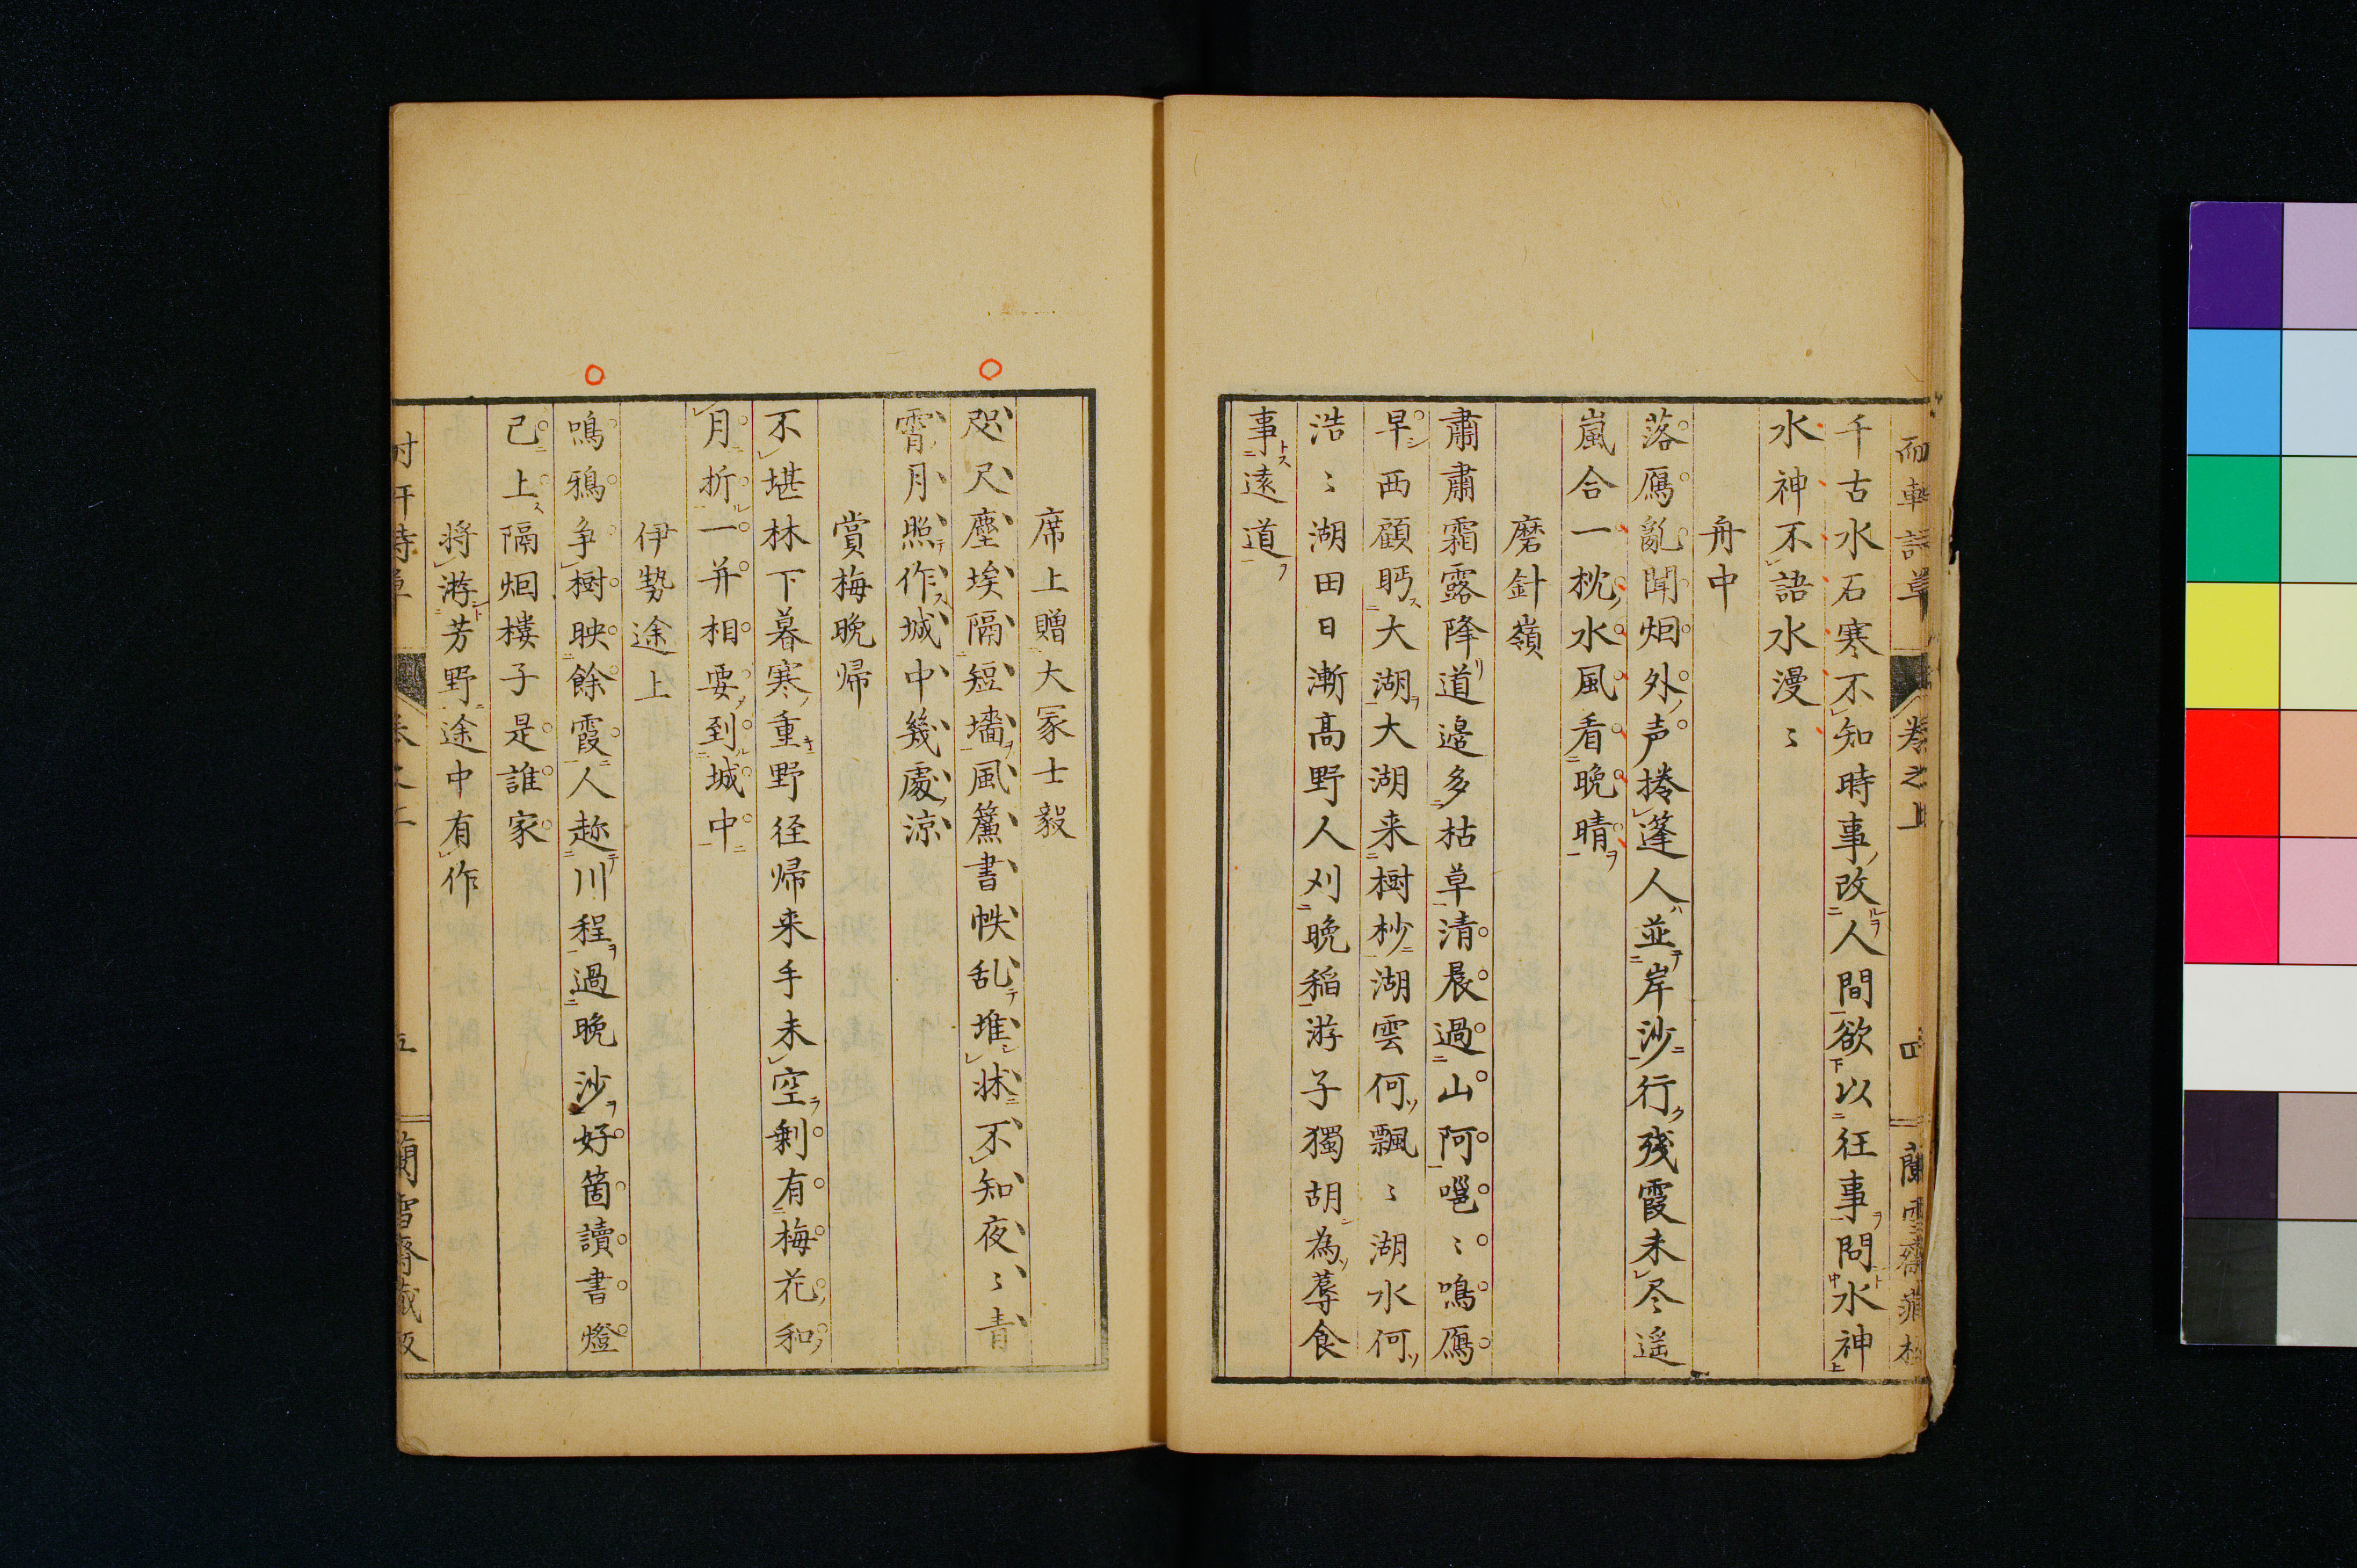 千古水石寒不知時事改人間欲以徃事問水神
水神不語水漫〻
舟中
落鴈亂聞烟外声捲蓬人並岸沙行殘霞未尽遥
嵐合一枕水風看晩晴
磨針嶺
肅肅霜露降道邉多枯草清晨過山阿嗈〻鳴鴈
早西顧眄大湖大湖来樹杪湖雲何飄〻湖水何
浩〻湖田日漸高野人刈晩稲游子獨胡為蓐食
事遠道
席上贈大冢士毅
咫尺塵埃隔短墻風簾書帙乱堆牀不知夜〻青
霄月照作城中幾處涼
賞梅晩帰
不堪林下暮寒重野径帰来手未空剩有梅花和
月折一并相要到城中
伊勢途上
鳴鴉争樹映餘霞人趂川程過晩沙好箇讀書燈
已上隔烟樓子是誰家
将游芳野途中有作